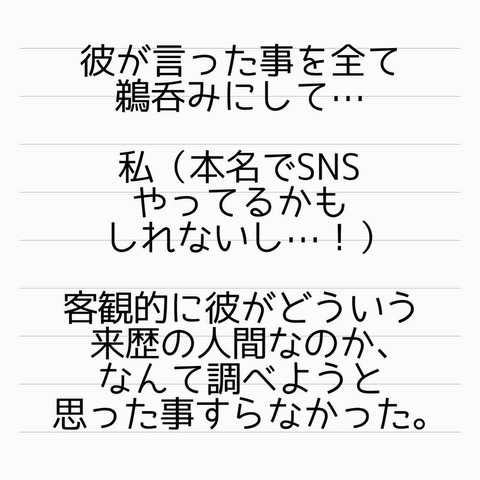 彼が言った事を全て
鵜呑みにして…
私（本名でSNS
やってるかも
しれないし…！）
客観的に彼がどういう
来歴の人間なのか、
なんて調べようと
思った事すらなかった。